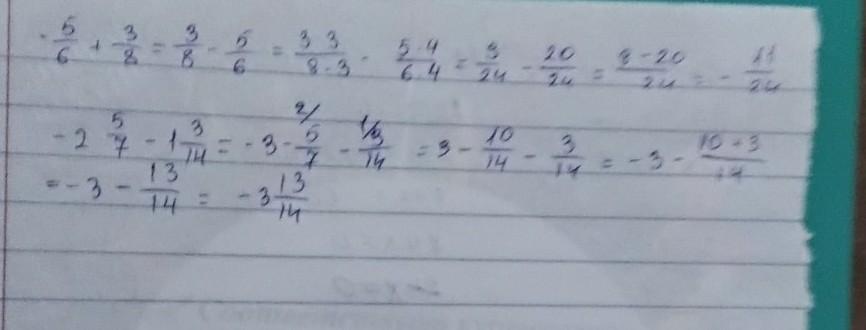 -5/6 + 3/8 = 3/8 - 5/6 = 3·3/8·3 - 5·4/6·4 = 9/24 - 20/24 = 9-20/24 = - 11/24
-2 5/7 - 1 3/14 = -3 - 5/7 - 3/14 = 3 - 10/14 - 3/14 = -3 - 10+3/14
= -3 - 13/14 = -3 13/14